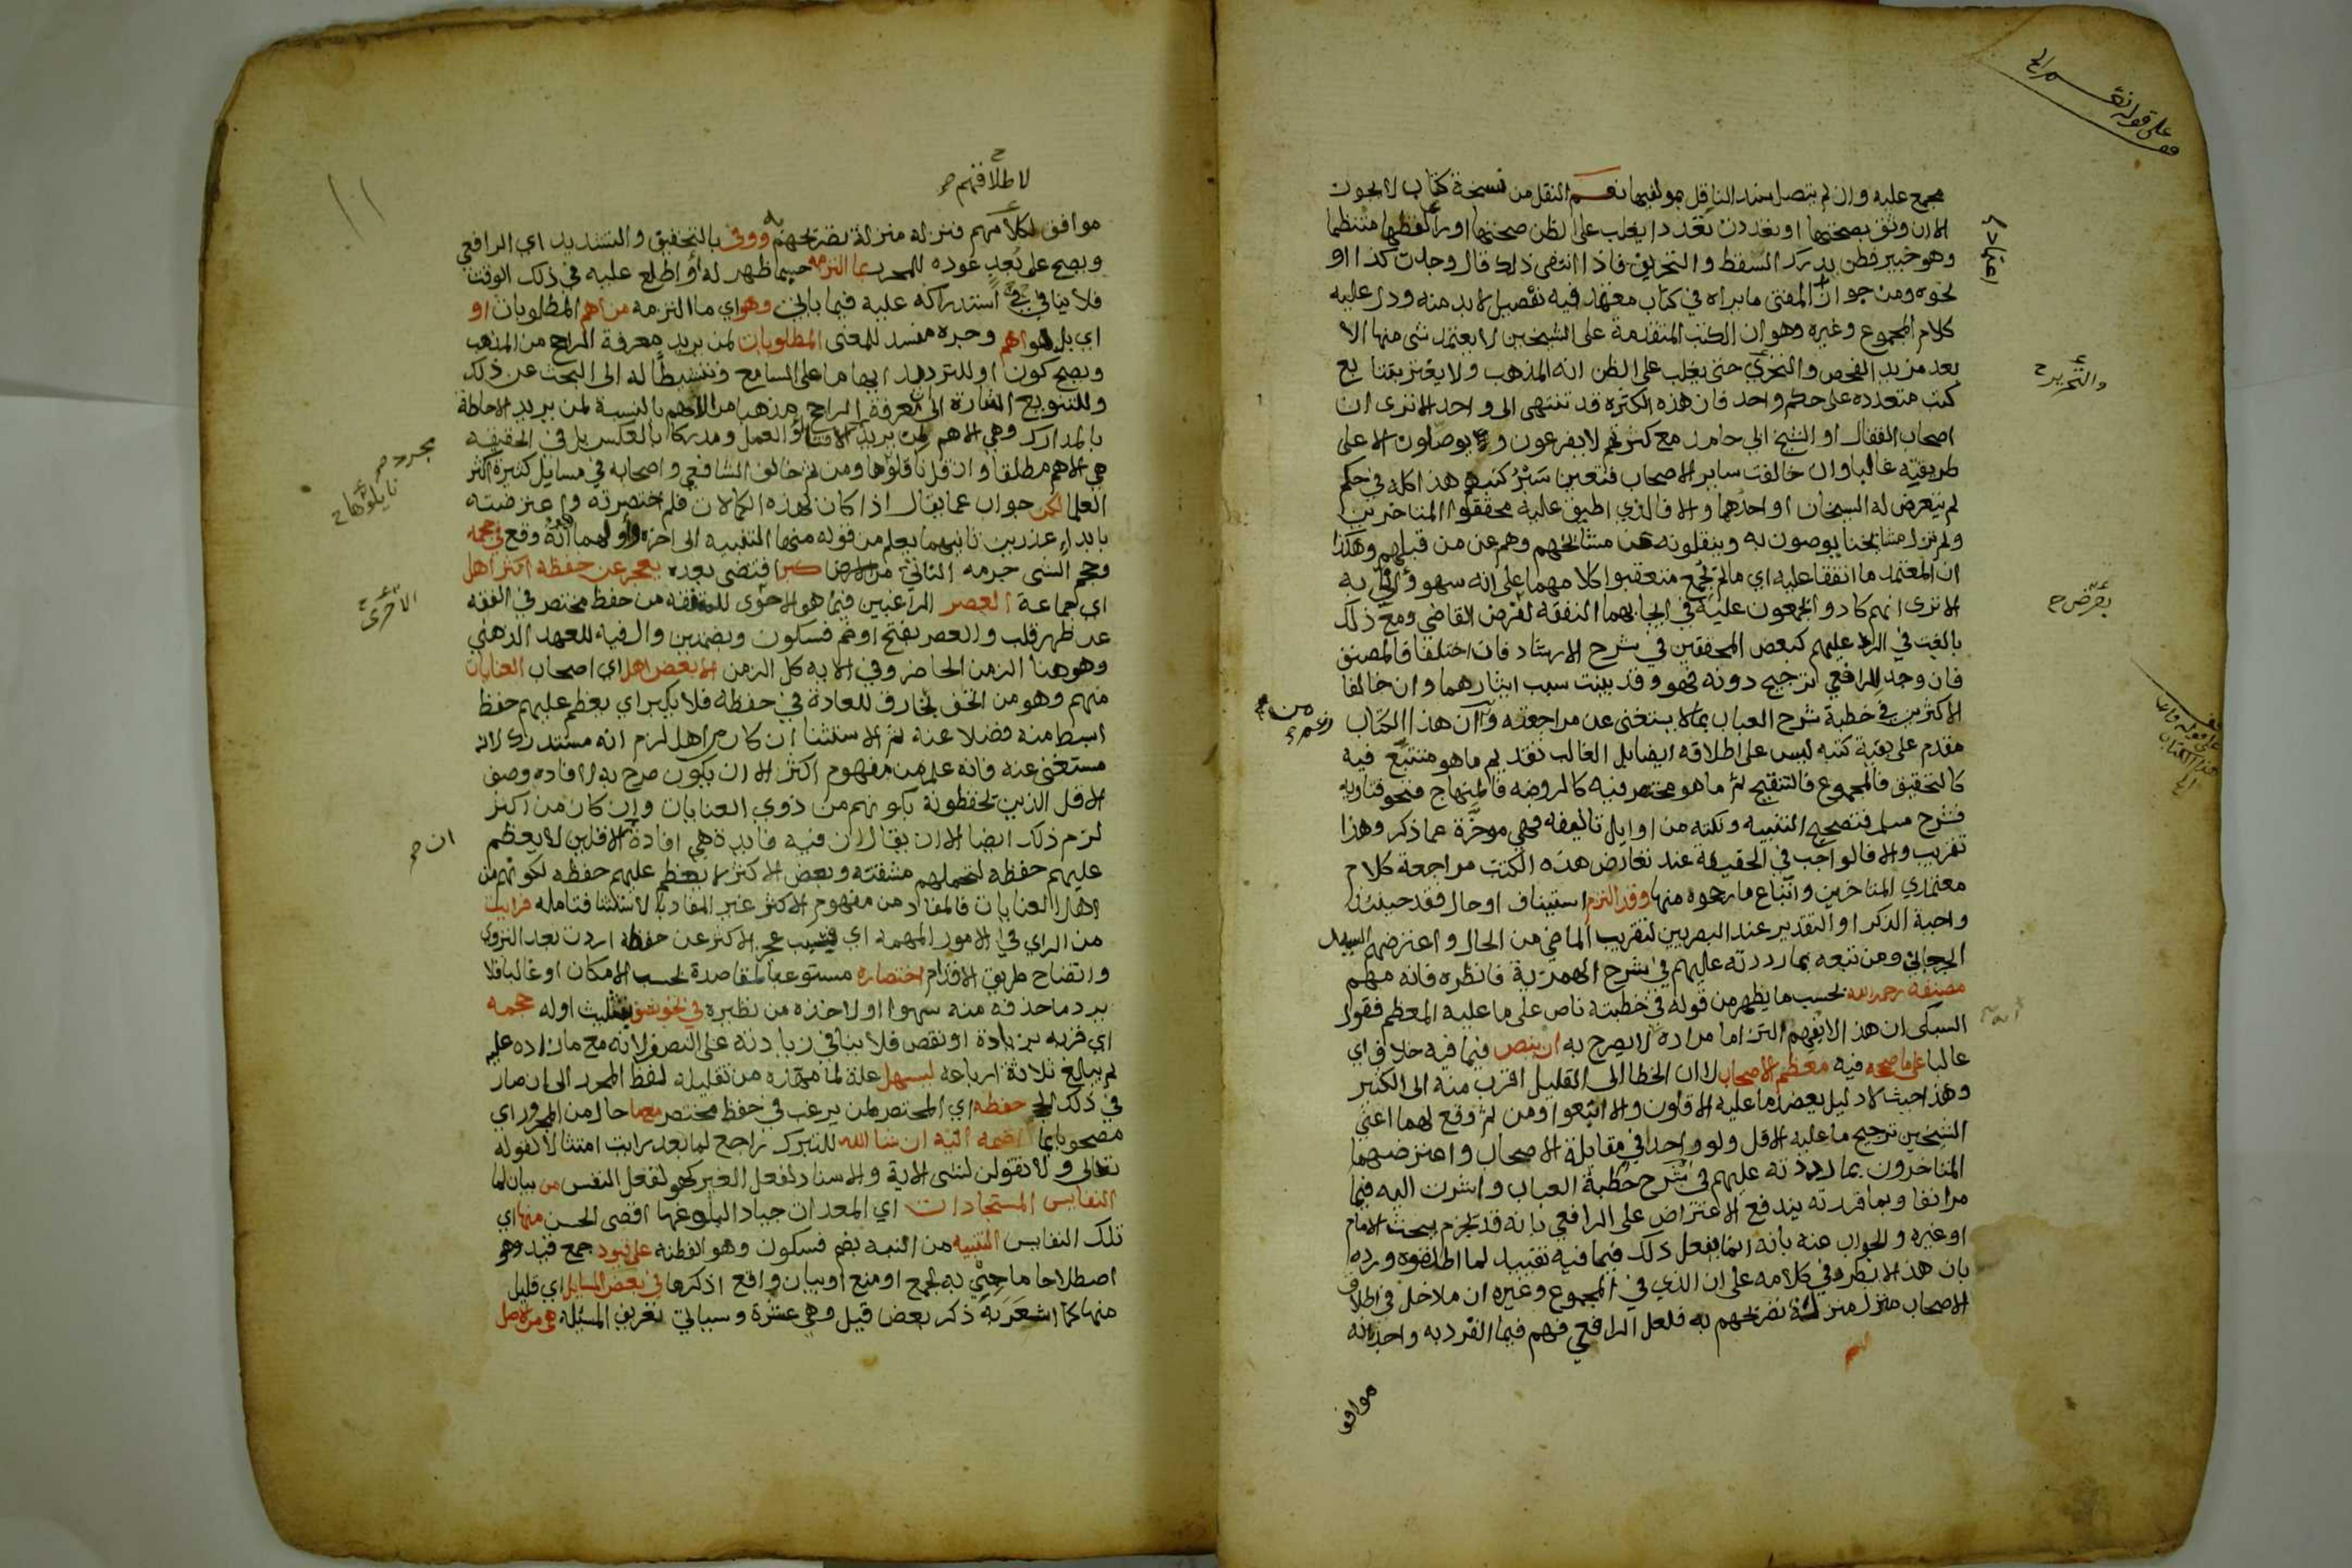 على قوله نعم الخ
مجمع عليه وان لم يتصل سند الناقل بمولفيها نعم النقل من نسخة كتاب لا يجوز
الا ان وثق بصحتها او تعددت تعددا يغلب على الظن صحتها او رأى لفظها منتظما
وهو خبير فطن يدرك السقط والتحريف فاذا انتفى ذلك قال وجدت كذا او
نحوه ومن جواز المفتى ما يراه في كتاب معتمد فيه تفصيل لا بد منه ودل عليه
كلام المجموع وغيره وهو ان الكتب المتقدمة على الشيخين لا يعتمد شى منها الا
بعد مزيد الفحص والتحري حتى يغلب على الظن انه المذهب ولا يغتر بتتابع
والتحرير ح
كتب متعدده على حكم واحد فان هذه الكثرة قد تنتهى الى واحد الا ترى ان
اصحاب القفال او الشيخ ابي حامد مع كثرتهم لا يفرعون ولا يوصلون الا على
طريقته غالبا وان خالفت ساير الاصحاب فتعين سبر كتبهم هذا كله في حكم
لم يتعرض له الشيخان او احدهما والا فالذي اطبق عليه محققوا المتاخرين
ولم تزل مشايخنا يوصون به وينقلونه عن مشائخهم وهم عن من قبلهم وهكذا
ان المعتمد ما اتفقا عليه اي ما لم يجمع متعقبوا كلامهما على انه سهو وانى به
الا ترى انهم كادوا يجمعون عليه في ايجابهما النفقة لفرض القاضي ومع ذلك
بفرض ح
بالغت في الرد عليهم كبعض المحققين في شرح الارشاد فان اختلفا فالمصنف
فان وجد للرافعي ترجيح دونه فهو وقد بينت سبب ايثارهما وان خالفا
الاكثرين في خطبة شرح العباب بما لا يستغنى عن مراجعته وان هذا الكتاب
مقدم على بقية كتبه ليس على اطلاقه ايضا بل الغالب تقديم ما هو متتبع فيه
كالتحقيق فالمجموع فالتنقيح ثم ما هو مختصر فيه كالروضه فالمنهاج فنحو فتاويه
فشرح مسلم فتصحيح التنبيه ونكته من اوايل تاليفه فهي موخرة عما ذكر وهذا
تقريب والا فالواجب في الحقيقة عند تعارض هذه الكتب مراجعة كلام
معتمدي المتاخرين واتباع ما رجحوه منها وقد التزم استيناف او حال فقد حينئذ
واجبة الذكر او التقدير عند البصريين لتقريب الماضي من الحال واعترضهم السيد
الجرجاني ومن تبعه بما رددته عليهم في شرح الهمزية فانظره فانه مهم
مصنفه رحمه الله بحسب ما يظهر من قوله في خطبته ناص على ما عليه المعظم فقول
السبكى ان هذا لا يفهم التزاما مراده لا يصرح به ان ينص فيما فيه خلاف اي
غالبا على ما صححه فيه معظم الاصحاب لان الخطا الى القليل اقرب منه الى الكثير
وهذا حيث لا دليل يعضد ما عليه الاقلون والا اتبعوا ومن ثم وقع لهما اعني
الشيخين ترجيح ما عليه الاقل ولو واحدا في مقابلة الاصحاب واعترضهما
المتاخرون بما رددته عليهم في شرح خطبة العباب واشرت اليه فيما
مر انفا وبما قررته يندفع الاعتراض على الرافعي بانه قد يجزم ببحث الامام
او غيره والجواب عنه بانه انما يفعل ذلك فيما فيه تقييد لما اطلقوه ورده
بان هذا لا يطرد في كلامه على ان الذي في المجموع وغيره ان ما دخل في اطلاق
الاصحاب منزل منزلة تصريحهم به فلعل الرافعي فهم فيما انفرد به واحد انه
موافق
لاطلاقهم
موافق لكلامهم فنزله منزلة تصريحهم ووفى بالتخفيف والتشديد اي الرافعي
ويصح على بعد عوده للمحرر بما التزمه حسبما ظهر له او اطلع عليه في ذلك الوقت
فلا ينافي استدراكه عليه فيما ياتي وهو اي ما التزمه من اهم المطلوبات او
اي بل هو اهم وحده مفسد للمعنى المطلوبات لمن يريد معرفة الراجح من المذهب
ويصح كون او للترديد ابهاما على السامع وتنشيطا له الى البحث عن ذلك
وللتنويع اشارة الى ان معرفة الراجح مذهبا من الاهم بالنسبة لمن يريد الاحاطة
بالمدارك وهي الاهم لمن يريد الافتا او العمل ومدركا بالعكس بل في الحقيقة
هي الاهم مطلقا وان قل ناقلوها ومن ثم خالف الشافعي واصحابه في مسايل كثيرة اكثر
مجرد
العلما لكن جواب عما يقال اذا كان بهذه الكمالات فلم اختصرته واعترضته
بابداء عذرين ثانيهما يعلم من قوله منها التنبيه الى اخره واولهما انه وقع في حجمه
وحجم الشى جرمه الناتئ من الارض كبر اقتضى بعده يعجز عن حفظه اكثر اهل
اي جماعة العصر الراغبين فيما هو الاحرى للمتفقه من حفظ مختصر في الفقه
عن ظهر قلب والعصر بفتح او ضم فسكون وبضمتين وال فيه للعهد الذهني
وهو هنا الزمن الحاضر وفي الاية كل الزمن الا بعض اهل اي اصحاب العنايات
منهم وهو من اتحف بخارق للعادة في حفظه فلا يكبر اي يعظم عليهم حفظ
ابسط منه فضلا عنه ثم الاستثنا ان كان من اهل لزم انه مستدرك لانه
مستغنى عنه فانه علم من مفهوم اكثر الا ان يكون صرح به لافاده وصف
الاقل الذين يحفظونه بكونهم من ذوي العنايات وان كان من اكثر
لزم ذلك ايضا الا ان يقال ان فيه فايدة هي افادة ان الاقلين لا يعظم
عليهم حفظه لتحملهم مشقته وبعض الاكثر لا يعظم عليهم حفظه لكونهم من
اهل العنايات فالمفاد من مفهوم الاكثر غير المفاد بالاستثنا فتامله فرايت
من الراي في الامور المهمه اي فبسبب عجز الاكثر عن حفظه اردت بعد التروي
واتضاح طريق الاقدام اختصاره مستوعبا لمقاصده بحسب الامكان او غالبا فلا
يرد ما حذفه منه سهوا او لاخذه من نظيره في نحو نصف بتثليث اوله حجمه
اي قربه بزيادة او نقص فلا ينافي زيادته على النصف ولانه مع ما زاده عليه
لم يبالغ ثلاثة ارباعه ليسهل علة لما مهمازه من تقليله لفظ المحرر الى ان صار
في ذلك الحجم حفظه اي المختصر لمن يرغب في حفظ مختصر مع ما حال من المجرور اي
مصحوبا بما اضمه اليه ان شا الله للتبرك راجع لما بعد رايت امتثالا لقوله
تعالى ولا تقولن لشى الاية والاسناد لفعل الغير كهو لفعل النفس من بيان لما
النفايس المستجادات اي المعدان جيادا لبلوغها اقصى الحسن منها اي
تلك النفايس التنبيه من النبه بضم فسكون وهو الفطنه على قيود جمع قيد وهو
اصطلاحا ما جيء به لجمع او منع او بيان واقع اذكرها في بعض المسايل اي قليل
منها كما اشعر به ذكر بعض قيل وهي عشرة وسياتي تعريف المسئله هي من الاصل